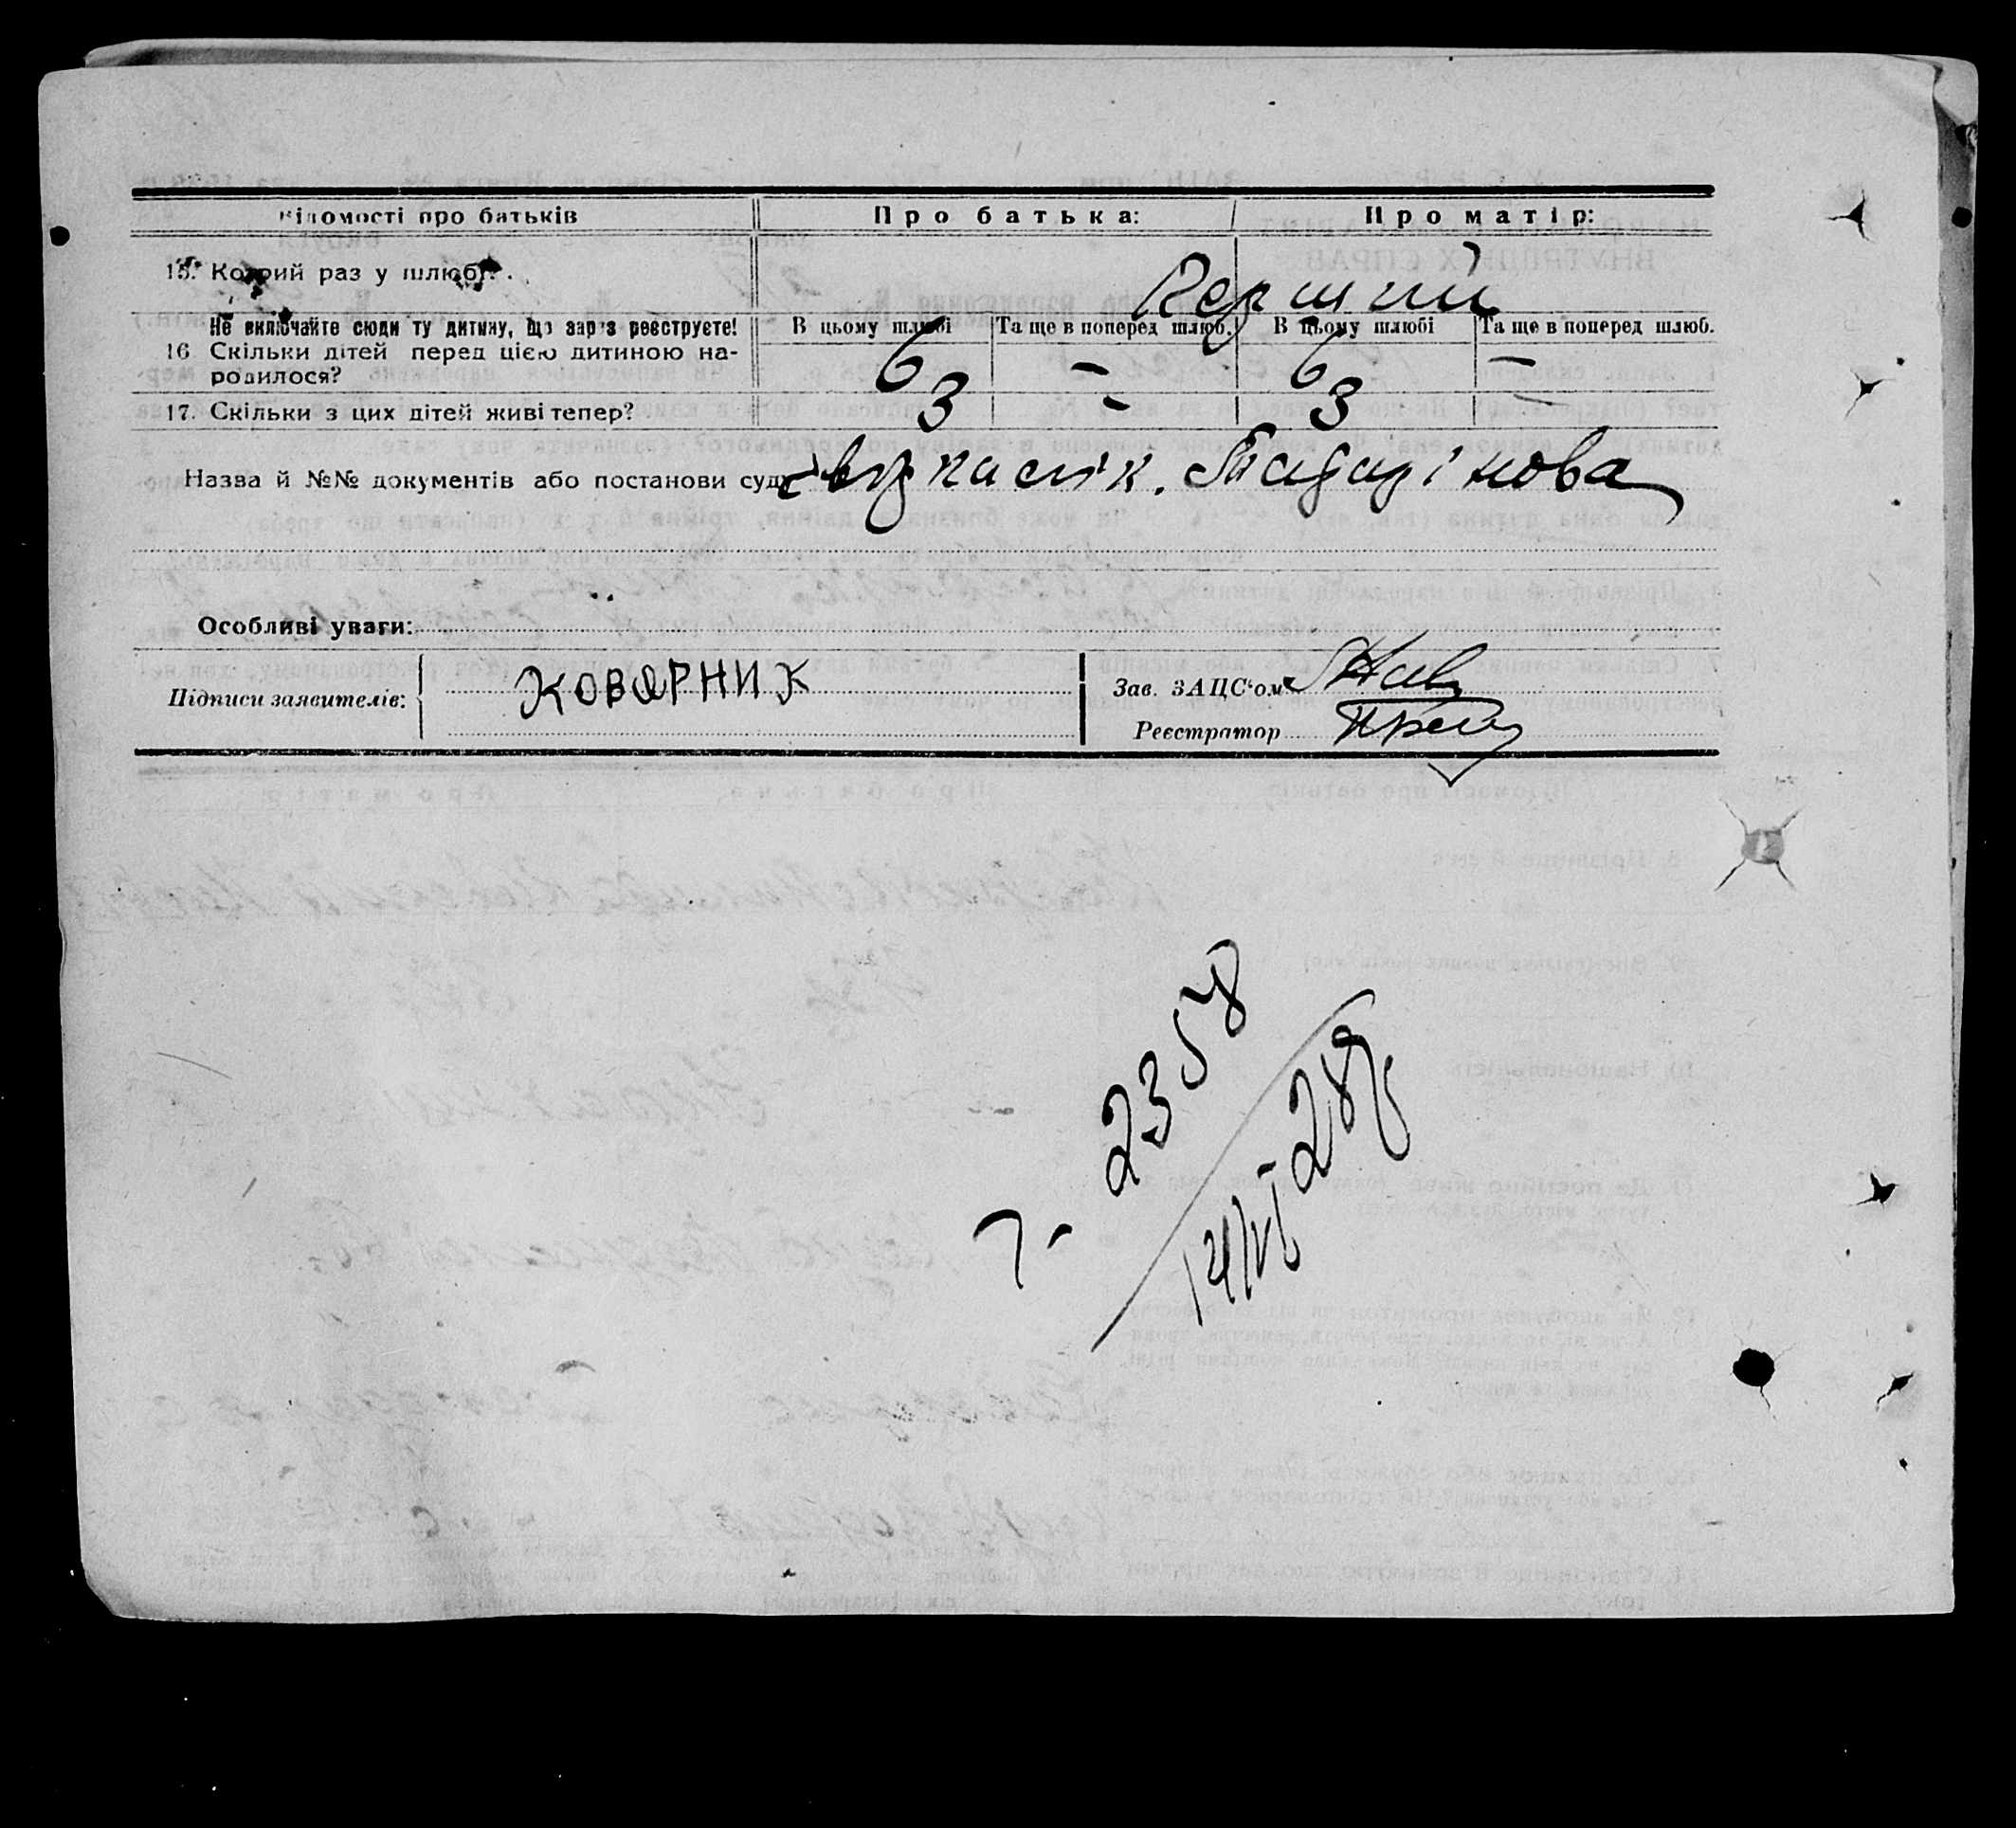 Відомості про батьків Про батька: Про матір:
15. Котрий раз у шлюбі? Перший
Не включайте сюди ту дитину, що зараз реєструєте! В цьому шлюбі Та ще в поперед шлюб. В цьому шлюбі Та ще в поперед шлюб.
16. Скільки дітей перед цією дитиною на-
родилося? 6 - 6 -
17. Скільки з цих дітей живі тепер? 3 - 3 -
Назва й №№ документів або постанови суду
Особливі уваги:
Підписи заявителів: КОВАРНИК Зав. ЗАЦС'ом
Реєстратор
2358